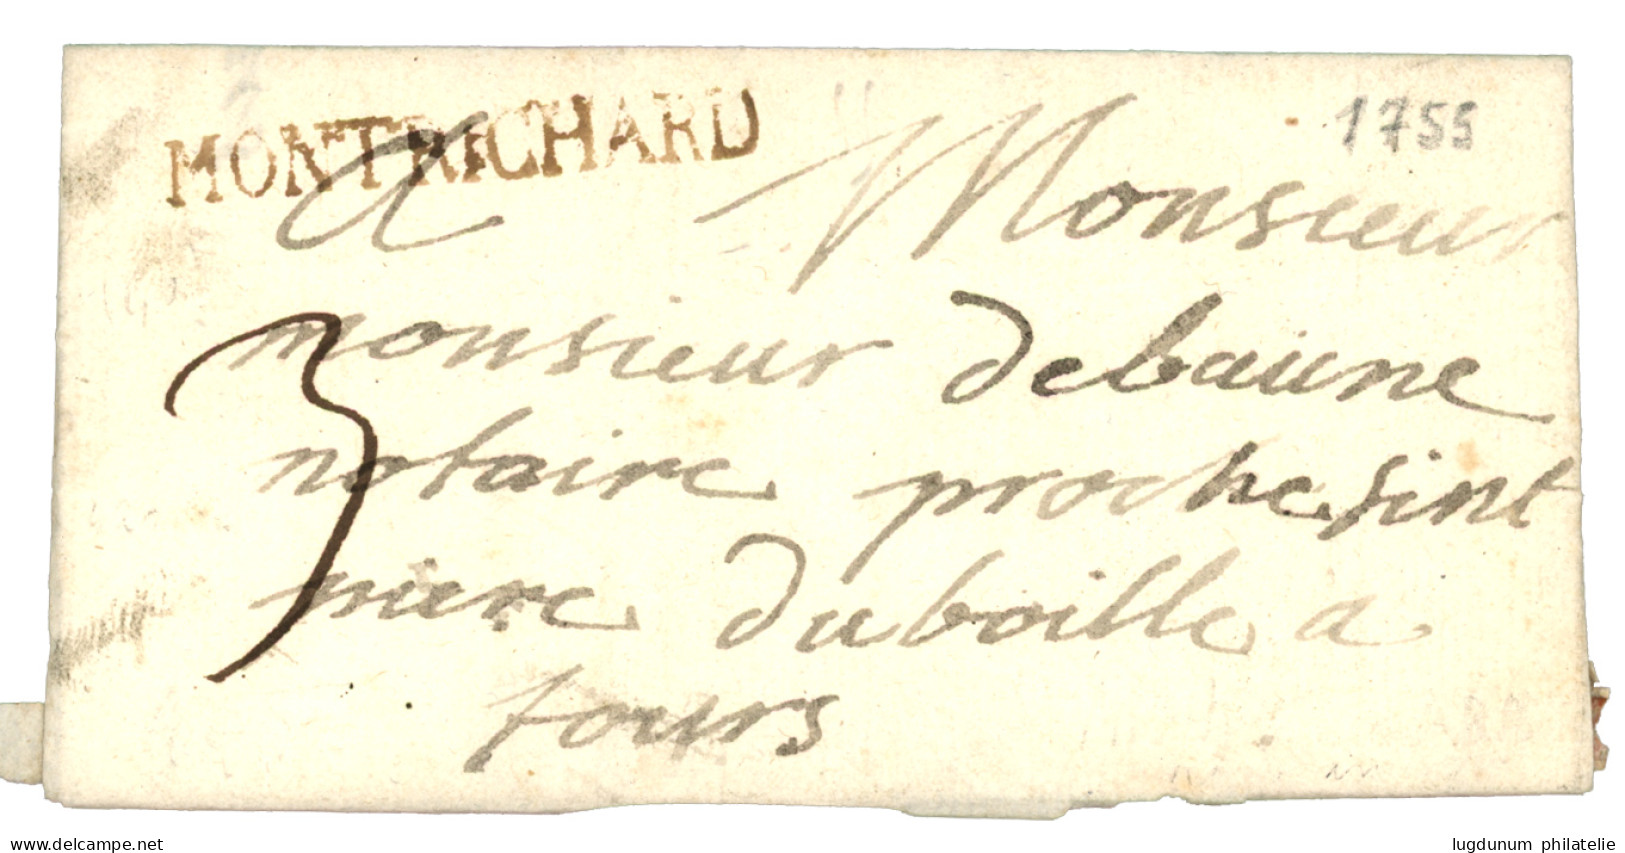 MONTRICHARD
1755
A Monsieur
monsieur debaune
notaire proche sint
piere du boille a
tours
3
www.delcampe.net
lugdunum philatelie